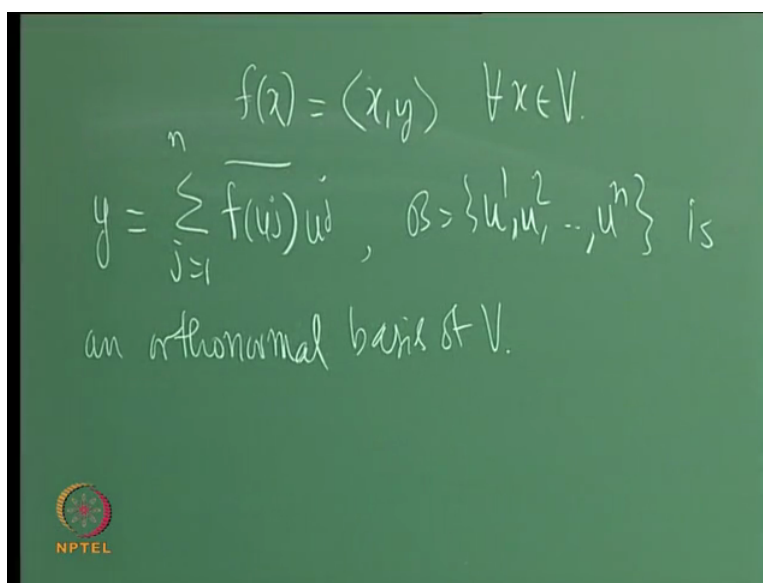 f(x) = ⟨x, y⟩ ∀ x ∈ V.
y = \sum_{j=1}^{n} \overline{f(u^j)} u^j , B = {u^1, u^2, .., u^n} is
an orthonormal basis of V.
NPTEL